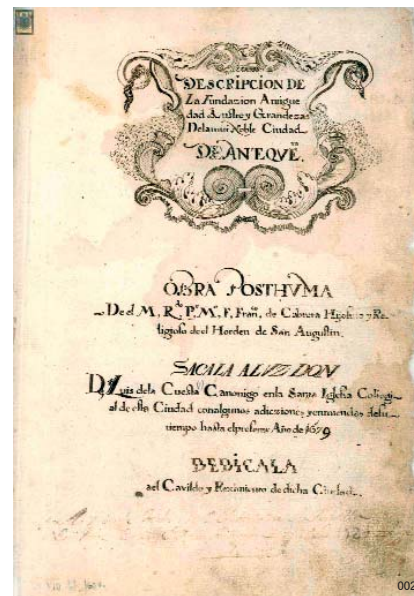 DESCRIPCION DE
La Fundazion Antigue
dad Lustre y Grandezas
Delamui Noble Ciudad
DE ANTEQVE.ra
OBRA POSTHVMA
De el M. R.do P. M.o F. Fran.co de Cabrera Hijo
ligioso de el Horden de San Augustin.
SACALA ALVZ DON
Luis dela Cuesta Canonigo enla Santa Iglesia Colegi
al de esta Ciudad con algunos adicziones y enmiendas desu
tiempo hasta el presente Año de 1679
DEDICALA
ael Cavildo y Reximiento de dicha Ciudad.
002